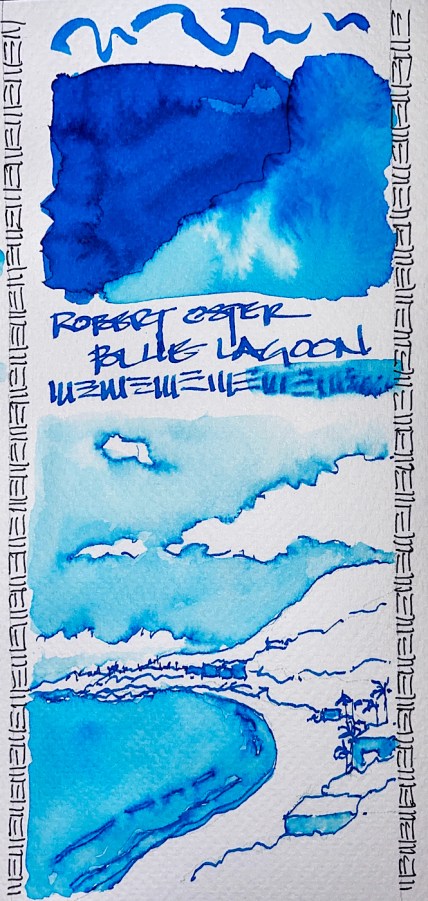 ROBERT OSTER
BLUE LAGOON